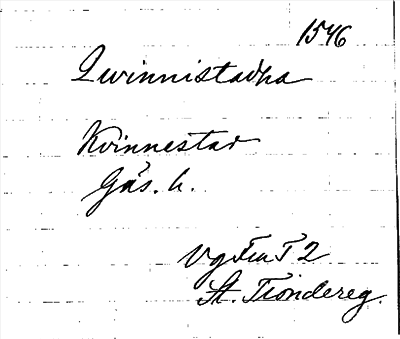 1546
Qwinnistadha
Kvinnestad
Gäs. h.
VgFtaT 2
St. Tiondereg.